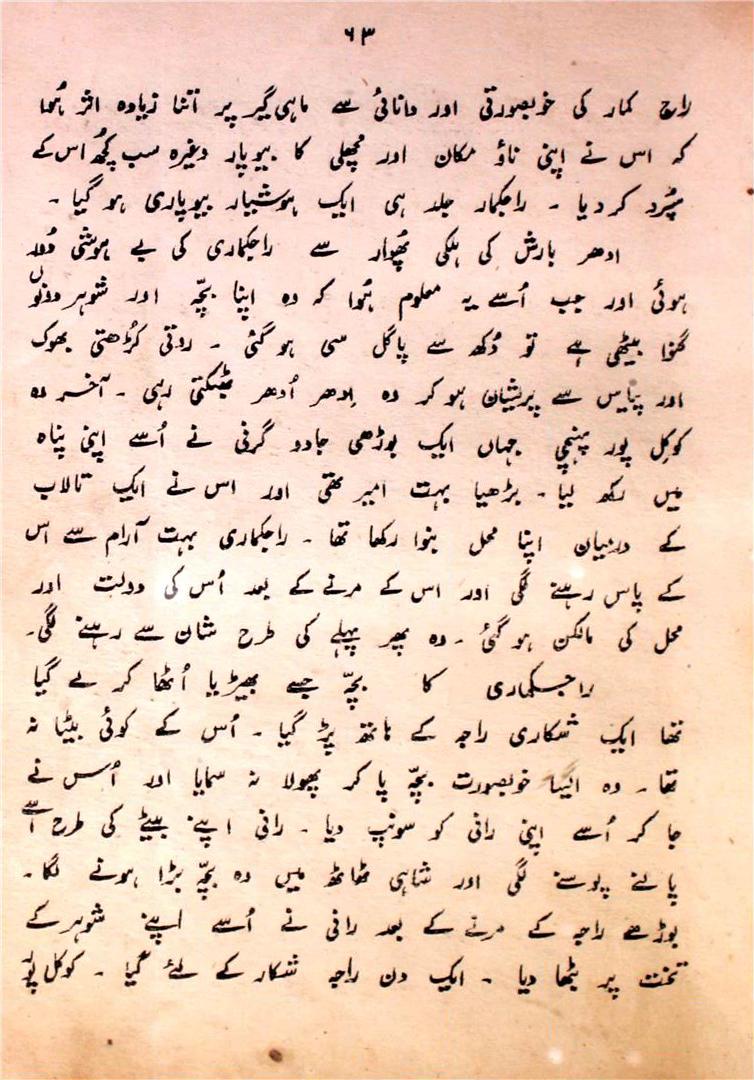 ۶۳
راج کمار کی خوبصورتی اور دانائی سے ماہی گیر پر اتنا زیادہ اثر ہُوا
کہ اس نے اپنی ناؤ مکان اور مچھلی کا بیوپار وغیرہ سب کچھ اس کے
سپُرد کر دیا ۔ راجکمار جلد ہی ایک ہوشیار بیوپاری ہو گیا ۔
ادھر بارش کی ہلکی پھُوار سے راجکماری کی بے ہوشی دُور
ہوئی اور جب اُسے یہ معلوم ہُوا کہ وہ اپنا بچّہ اور شوہر دونوں
گنوا بیٹھی ہے تو دُکھ سے پاگل سی ہو گئی ۔ روتی کُڑھتی بھوک
اور پیاس سے پریشان ہو کر وہ اِدھر اُدھر بھٹکتی رہی ۔ آخر وہ
کوکِل پور پہنچی جہاں ایک بوڑھی جادو گرنی نے اُسے اپنی پناہ
میں رکھ لیا ۔ بڑھیا بہت امیر تھی اور اس نے ایک تالاب
کے درمیان اپنا محل بنوا رکھا تھا ۔ راجکماری بہت آرام سے اس
کے پاس رہنے لگی اور اس کے مرنے کے بعد اُس کی دولت اور
محل کی مالکن ہو گئی ۔ وہ پھر پہلے کی طرح شان سے رہنے لگی۔
راجکماری کا بچّہ جسے بھیڑیا اُٹھا کر لے گیا
تھا ایک شکاری راجہ کے ہاتھ پڑ گیا ۔ اُس کے کوئی بیٹا نہ
تھا ۔ وہ ایسا خوبصورت بچّہ پا کر پھولا نہ سمایا اور اُس نے
جا کر اُسے اپنی رانی کو سونپ دیا ۔ رانی اپنے بیٹے کی طرح اُسے
پالنے پوسنے لگی اور شاہی ٹھاٹھ میں وہ بچّہ بڑا ہونے لگا ۔
بوڑھے راجہ کے مرنے کے بعد رانی نے اُسے اپنے شوہر کے
تخت پر بٹھا دیا ۔ ایک دن راجہ شکار کے لئے گیا ۔ کوکل پور